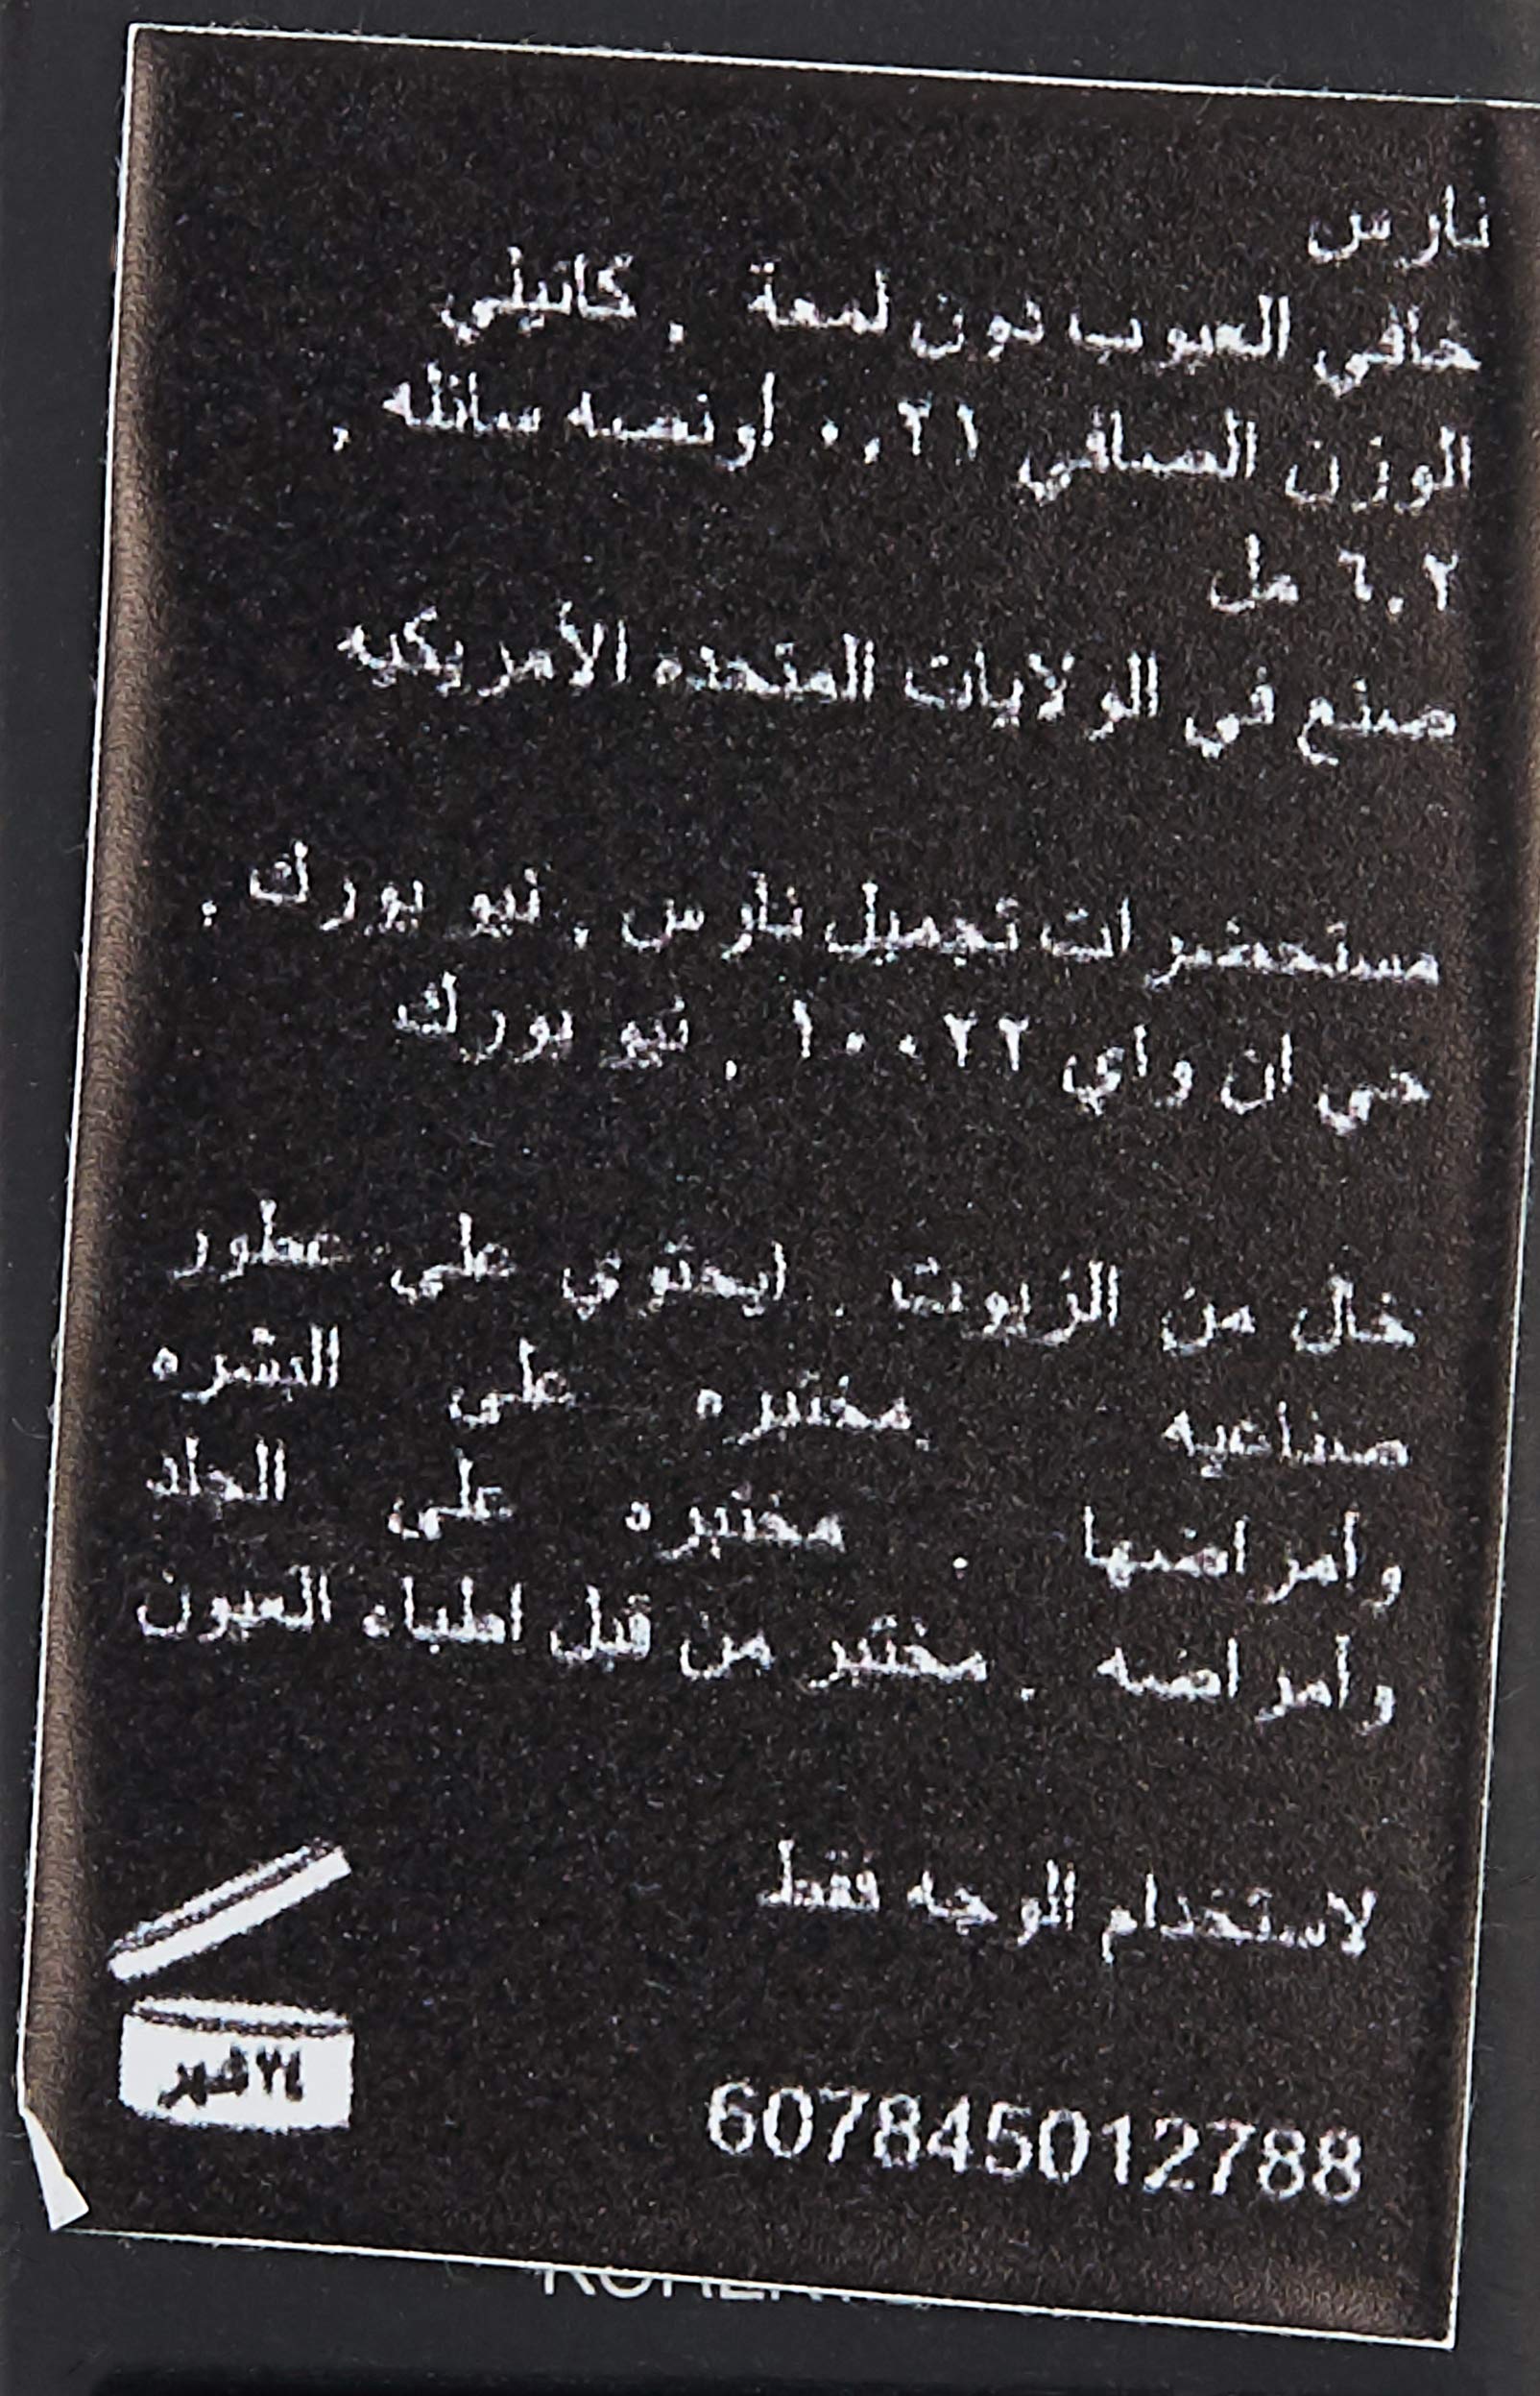 نارس
خافي العيوب دون لمعة . كانيلي
الوزن الصافي ٠.٢١ اونصه سائله ,
٦.٢ مل
صنع في الولايات المتحده الأمريكيه
مستحضرات تجميل نارس , نيو يورك ,
جي ان واي ١٠٠٢٢ , نيو يورك
خال من الزيوت . ايحتوي على عطور
صناعيه .مختبره على البشره
وأمراضها . مختبره على الجلد
وأمراضه . مختبر من قبل اطباء العيون
لاستخدام الوجه فقط
٢٤شهر
607845012788